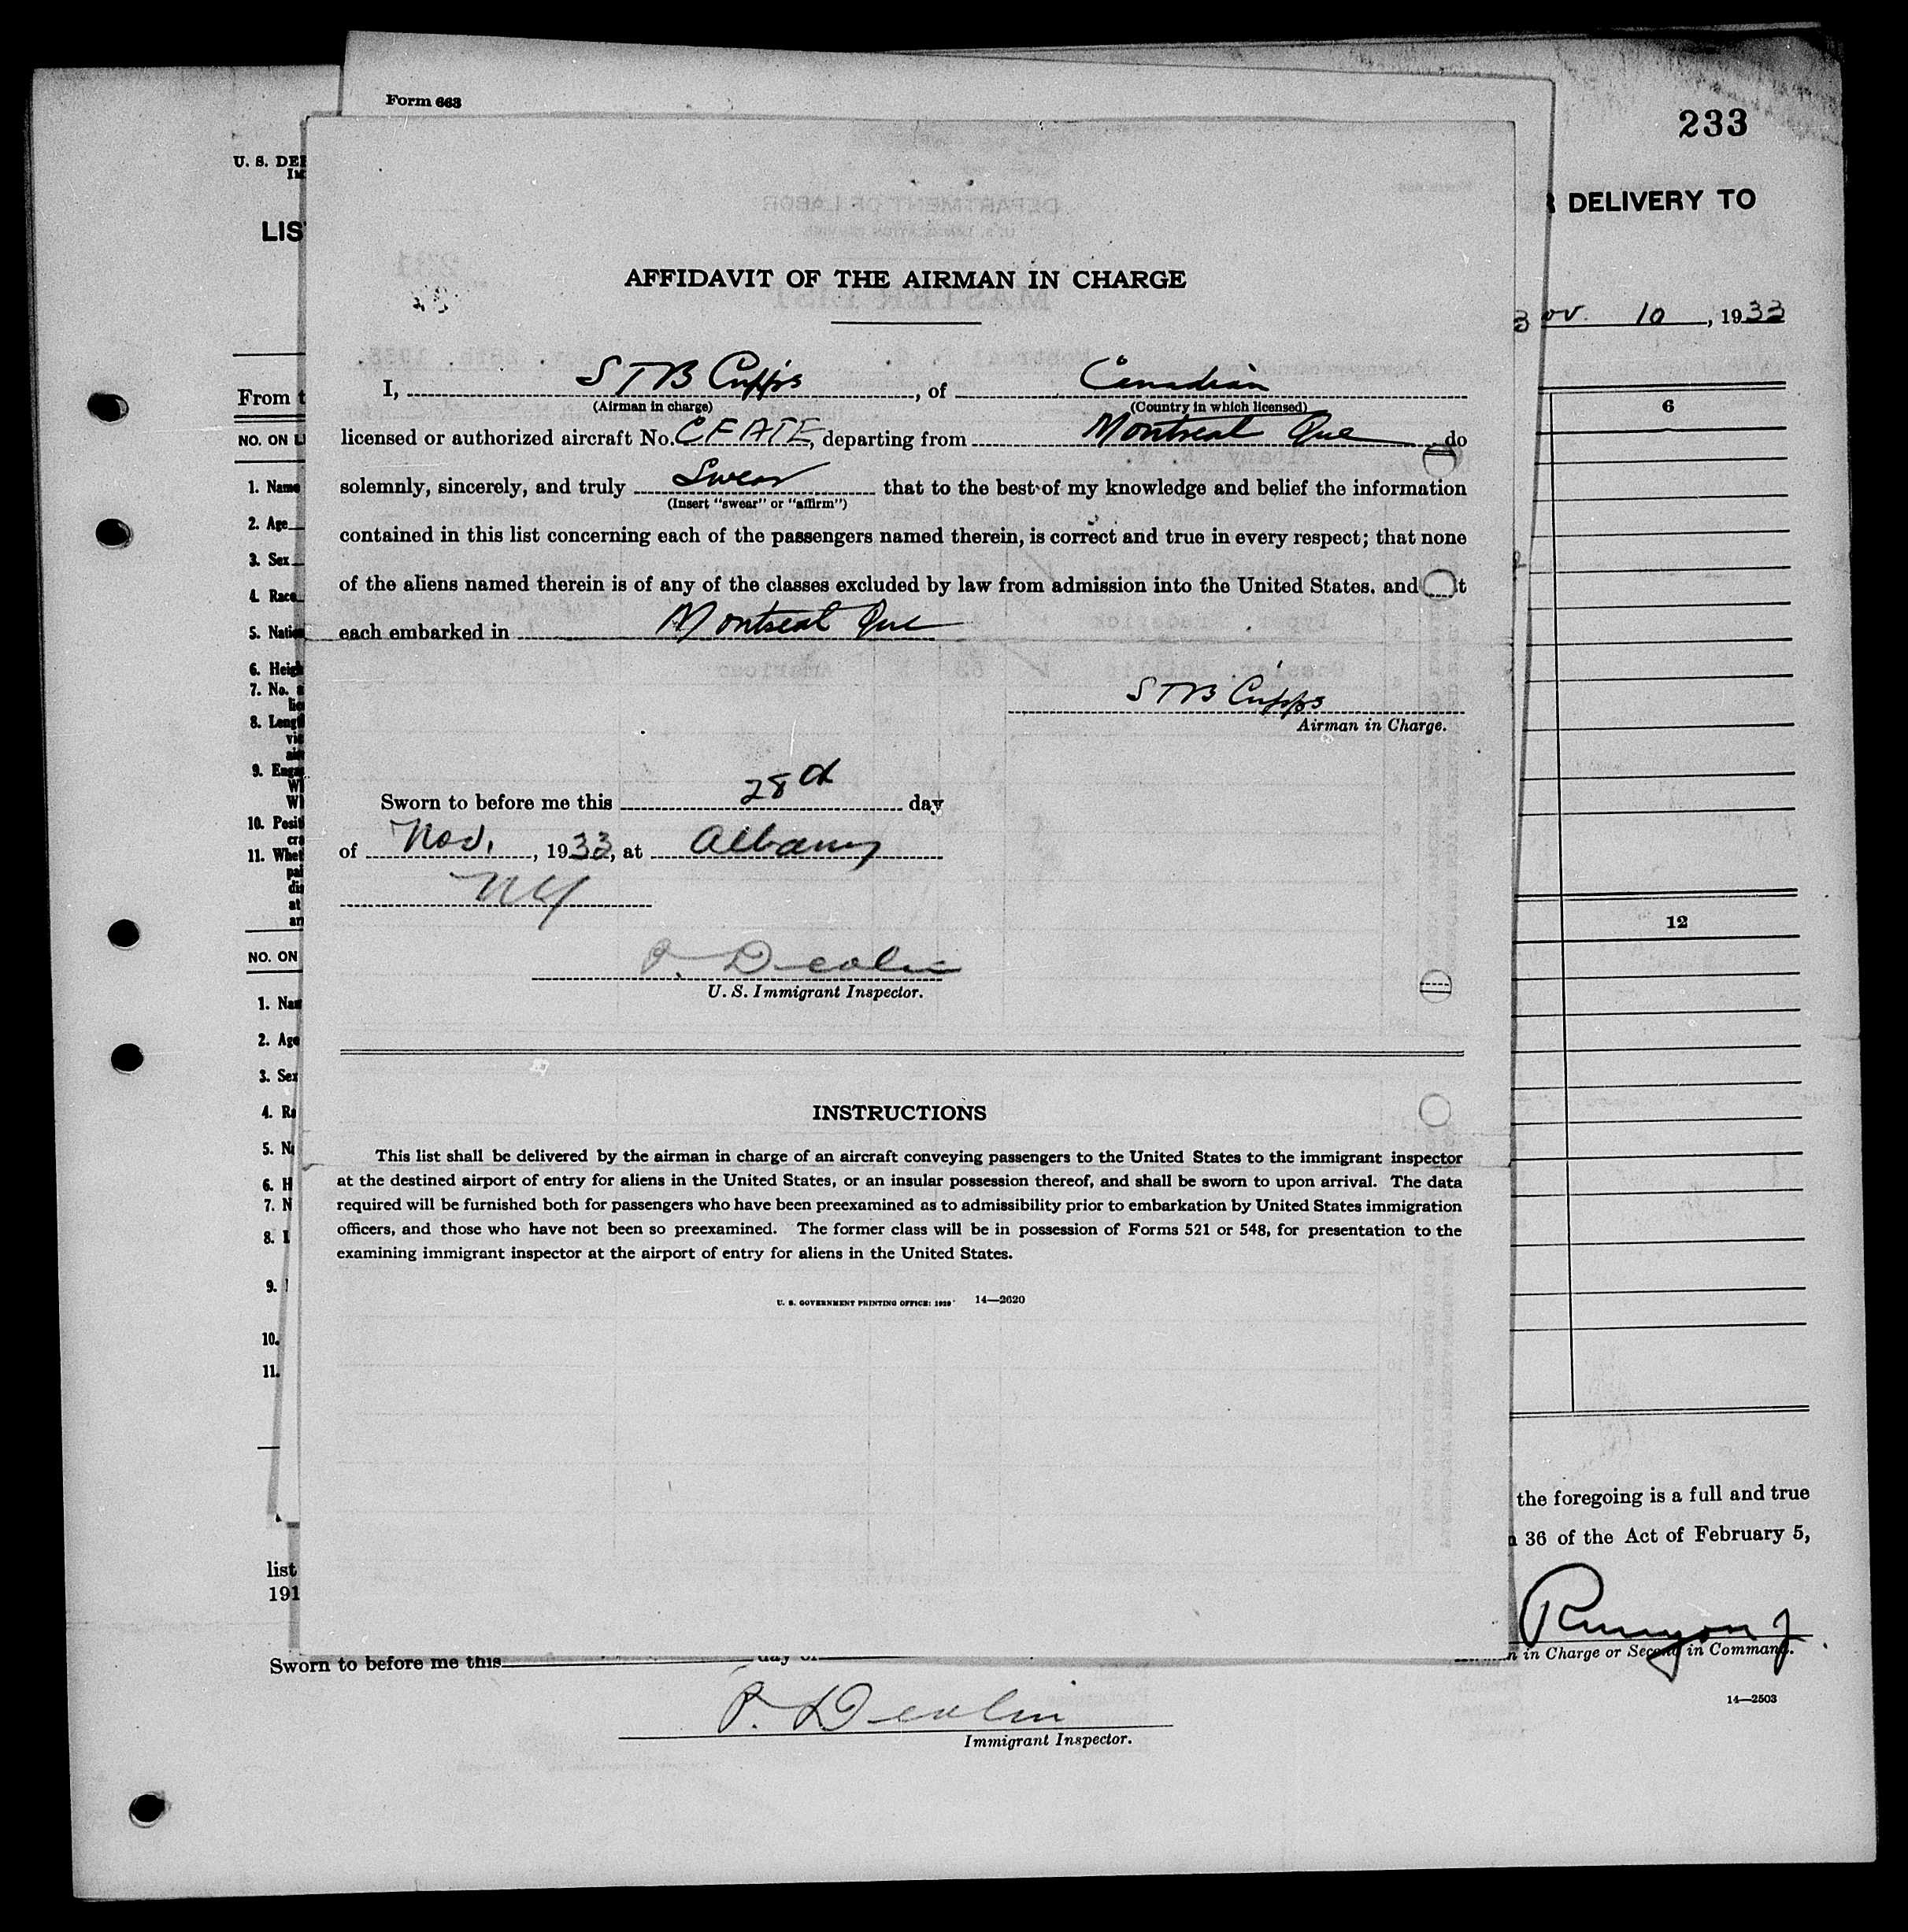 Form 663
233
U. S. DE
LIS
DELIVERY TO
AFFIDAVIT OF THE AIRMAN IN CHARGE
ov. 10, 1933
I, S T B Cripps, of Canadian
(Airman in charge) (Country in which licensed)
licensed or authorized aircraft No. CFATE, departing from Montreal Que do
solemnly, sincerely, and truly Swear that to the best of my knowledge and belief the information
(Insert "swear" or "affirm")
contained in this list concerning each of the passengers named therein, is correct and true in every respect; that none
of the aliens named therein is of any of the classes excluded by law from admission into the United States, and t
each embarked in Montreal Que
S T B Cripps
Airman in Charge.
Sworn to before me this 28th day
of Nov., 1933, at Albany
NY
P. Devlin
U. S. Immigrant Inspector.
INSTRUCTIONS
This list shall be delivered by the airman in charge of an aircraft conveying passengers to the United States to the immigrant inspector
at the destined airport of entry for aliens in the United States, or an insular possession thereof, and shall be sworn to upon arrival. The data
required will be furnished both for passengers who have been preexamined as to admissibility prior to embarkation by United States immigration
officers, and those who have not been so preexamined. The former class will be in possession of Forms 521 or 548, for presentation to the
examining immigrant inspector at the airport of entry for aliens in the United States.
U. S. GOVERNMENT PRINTING OFFICE: 1929 14—2620
From t
NO. ON L
1. Name
2. Age
3. Sex
4. Race
5. Natio
6. Heigh
7. No. a
8. Lengt
9. Enga
10. Posit
11. Whet
NO. ON
1. Nam
2. Age
3. Sex
4. Ra
5. N
6. H
7. N
8. L
9.
10.
11.
6
12
the foregoing is a full and true
36 of the Act of February 5,
list
191
Runyon J
in Charge or Second in Command.
Sworn to before me this day of
14—2503
P. Devlin
Immigrant Inspector.